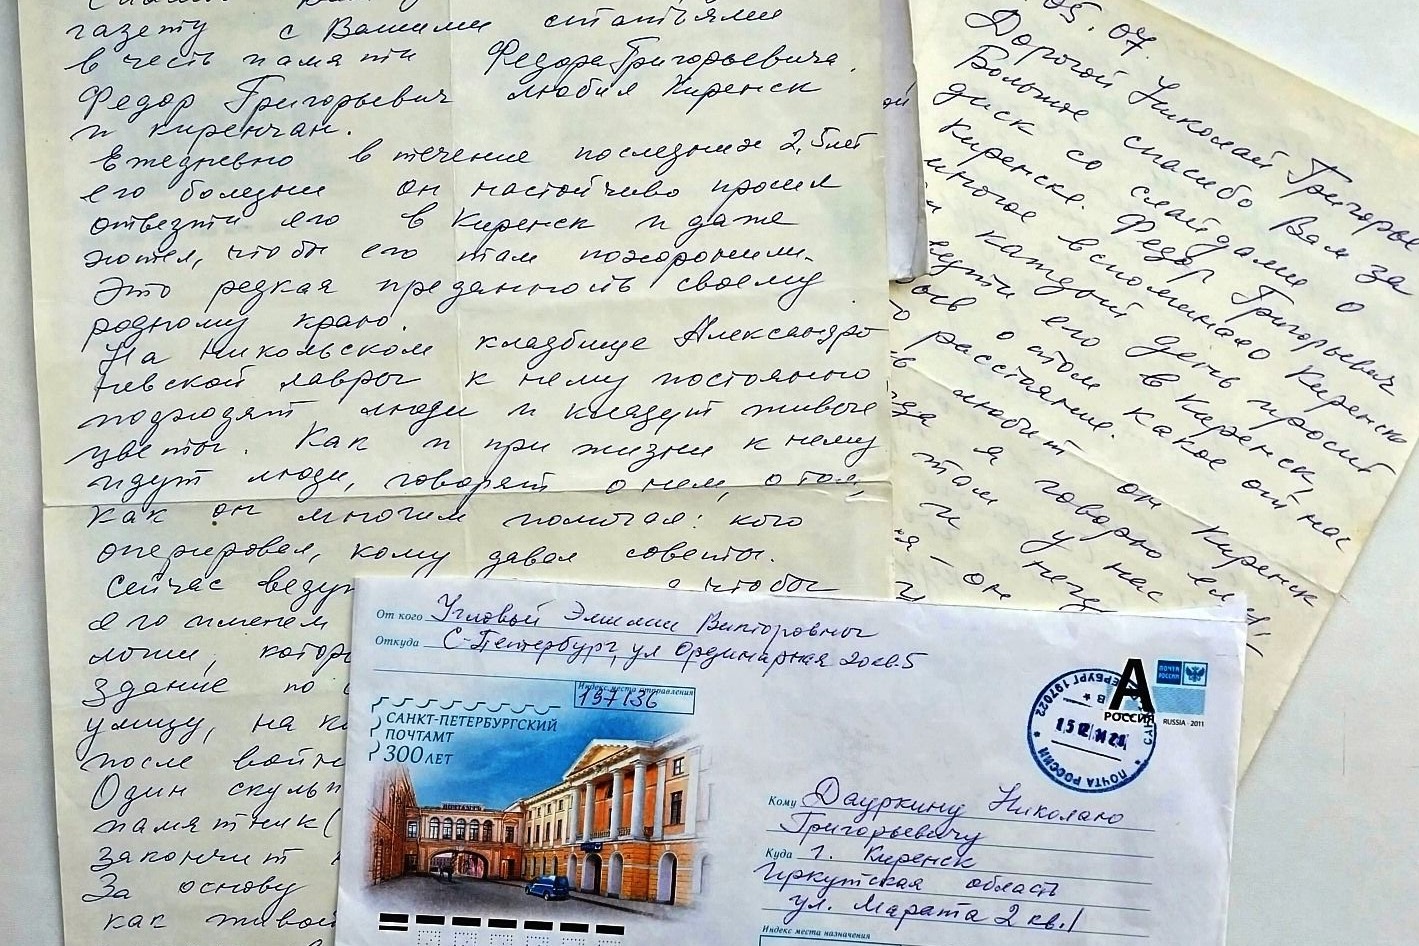 газету с Вашими статьями
в честь памяти Федора Григорьевича.
Федор Григорьевич любил Киренск
и киренчан.
Ежедневно в течение последних 2,5 лет
его болезни он настойчиво просил
отвезти его в Киренск и даже
хотел, чтобы его там похоронили.
Это редкая преданность своему
родному краю.
На Никольском кладбище Александро
Невской лавры к нему постоянно
подходят люди и кладут живые
цветы. Как и при жизни к нему
идут люди, говорят о нем, о том,
как он многим помогал: кого
оперировал, кому давал советы.
Сейчас ведут
чтобы
его именем
здание по
улицу, на к
после войн
Один скульп
памятник (
закончит
За основу
как живой
05.07.
Дорогой Николай Григорье
Большое спасибо Вам за
диск со слайдами о
Киренске. Федор Григорьевич
многое вспоминало Киренске
и каждый день просит
его в Киренск,
о том какое от нас
расстояние.
любит он Киренск
я говорю ем
там у нас
и нет
он
От кого Угловой Эмилии Викторовны
Откуда С-Петербург, ул Ординарная 20 кв 5
Индекс места отправления
197136
САНКТ-ПЕТЕРБУРГСКИЙ
ПОЧТАМТ
300 ЛЕТ
ПОЧТАМТЪ
А
РОССИЯ
ПОЧТА РОССИИ
RUSSIA · 2011
САНКТ-ПЕТЕРБУРГ 197022
ПОЧТА РОССИИ
Кому Дауркину Николаю
Григорьевичу
Куда г. Киренск
Иркутская область
ул. Марата 2 кв. 1
Индекс места назначения